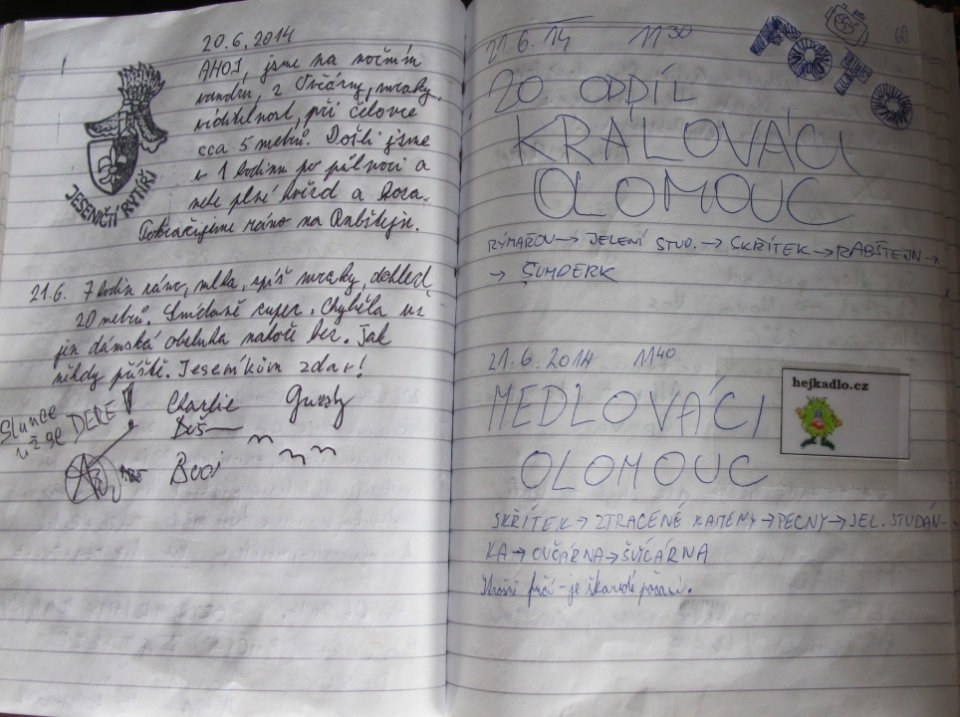 20.6.2014
AHOJ, jsme na nočním
vandru, z Ovčárny, mraky,
viditelnost, při čelovce
cca 5 metrů. Došli jsme
v 1 hodinu po půlnoci a
nebe plné hvězd a
Pokračujeme ráno na Rabštejn.
JESENIČTÍ RYTÍŘI
21.6. 7 hodin ráno, mlha, spíš mraky, dohled
20 metrů. Snídaně super. Chyběla už
jen dámská obsluha nahoře bez. Jak
někdy příště. Jeseníkům zdar!
Slunce
už se DERE!
Charlie
Boči
21.6.14 11 30
FOTO
60
20. ODDÍL
KRALOVÁCI
OLOMOUC
RÝMAŘOV → JELENÍ STUD. → SKŘÍTEK → RABŠTEJN →
→ ŠUMPERK
21.6.2014 11 40
MEDLOVÁCI
OLOMOUC
hejkadlo.cz
SKŘÍTEK → ZTRACENÉ KAMENY → PECNY → JEL. STUDÁN-
KA → OVČÁRNA → ŠVÝCÁRNA
prčí - je škaredé počasí.